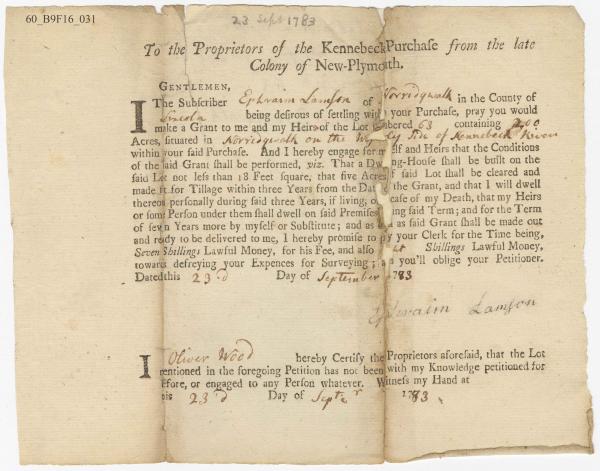 60_B9F16_031
23 Sept 1783
To the Proprietors of the Kennebeck Purchase from the late
Colony of New-Plymouth.
GENTLEMEN,
I The Subscriber Ephraim Lamson of Norridgwalk in the County of
Lincoln being desirous of settling with your Purchase, pray you would
make a Grant to me and my Heirs of the Lot bered 63 containing 200
Acres, situated in Norridgwalk on the ly Side of Kennebeck River
within your said Purchase. And I hereby engage for m self and Heirs that the Conditions
of the said Grant shall be performed, viz. That a Dw ing-House shall be built on the
said Lot not less than 18 Feet square, that five Acres f said Lot shall be cleared and
made fit for Tillage within three Years from the Dat the Grant, and that I will dwell
thereon personally during said three Years, if living, o case of my Death, that my Heirs
or some Person under them shall dwell on said Premises ing said Term; and for the Term
of seven Years more by myself or Substitute; and as as said Grant shall be made out
and ready to be delivered to me, I hereby promise to p y your Clerk for the Time being,
Seven Shillings Lawful Money, for his Fee, and also Shillings Lawful Money,
towards defreying your Expences for Surveying; a you'll oblige your Petitioner.
Dated this 23d Day of September 1783
Ephraim Lamson
I Oliver Wood hereby Certify the Proprietors aforesaid, that the Lot
mentioned in the foregoing Petition has not been with my Knowledge petitioned for
before, or engaged to any Person whatever. Witness my Hand at
his 23d Day of Septr 1783.